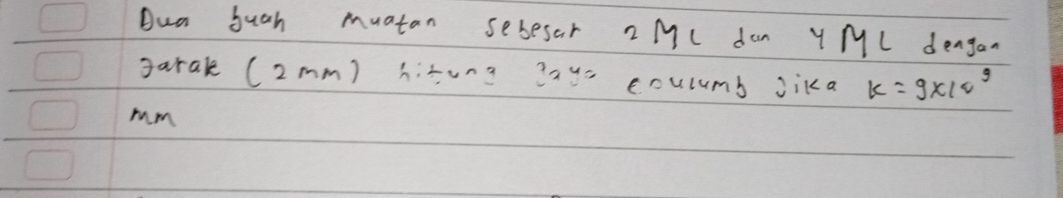 Dua buah muatan sebesar 2 MC dan 4 MC dengan
Jarak (2 mm) hitung gaya coulumb jika k = 9x10⁹
mm